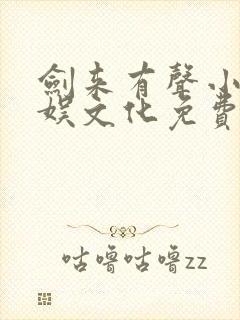 劍来有聲小
娛文化免費
咕噜咕噜zz